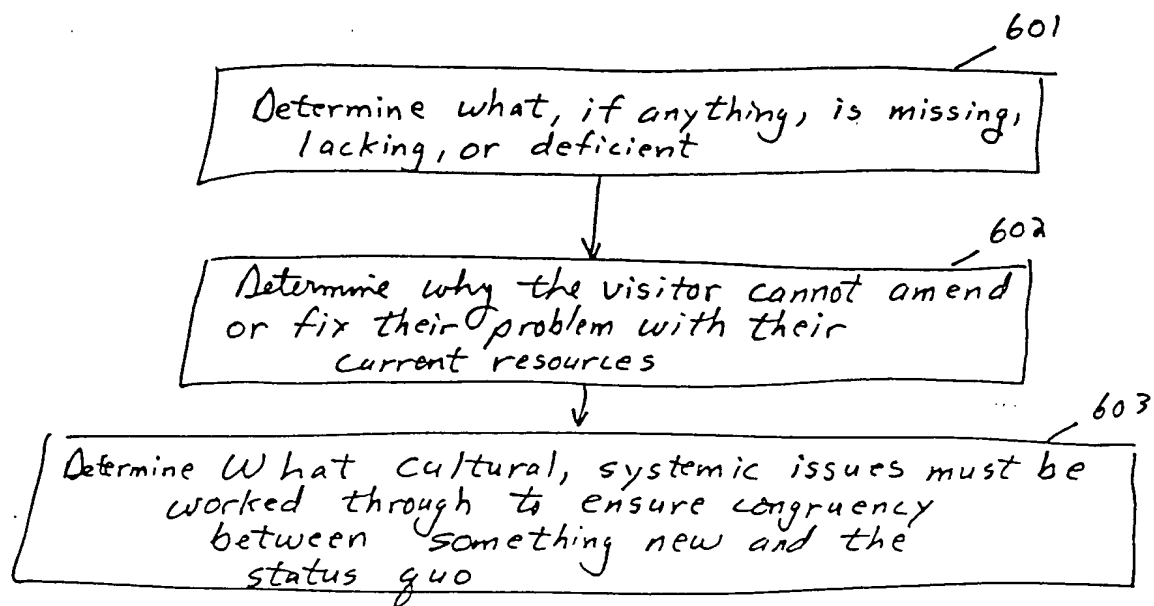 601
Determine what, if anything, is missing,
lacking, or deficient
602
Determine why the visitor cannot amend
or fix their problem with their
current resources
603
Determine What cultural, systemic issues must be
worked through to ensure congruency
between something new and the
status quo